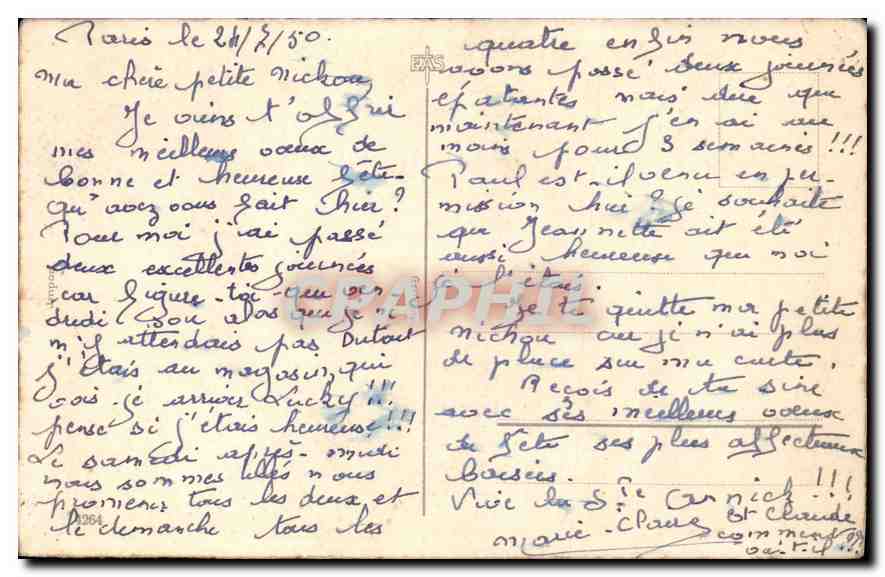 Paris le 24/7/50.
Ma chère petite Nichou
Je viens t'offrir
mes meilleurs voeux de
bonne et heureuse fête
qu'avez vous fait hier?
Pour moi j'ai passé
deux excellentes journées
car figure-toi que ven
dredi soir alors que je ne
m'y attendais pas Dutout
j'étais au magasin, qui
vois-je arriver Lucky!!!
pense si j'étais heureuse!!!
Le samedi après-midi
nous sommes allés nous
promener tous les deux et
le demanche tous les
4264
EAS
quatre enfin nous
avons passé deux journées
épatantes mais dire que
maintenant j'en ai au
moins pour 3 semaines!!!
Paul est-il venu en per-
mission hier? je souhaite
que Jeannette ait été
aussi heureuse que moi
je l'étais.
Je te quitte ma petite
Nichou car je n'ai plus
de place sur ma carte.
Reçois de ta
avec ses meilleurs voeux
de fête ses plus affectueux
baisers.
Vive la Ste !!!
St Claude
Marie-Claire
comment
va-t-il
CPAPHIL